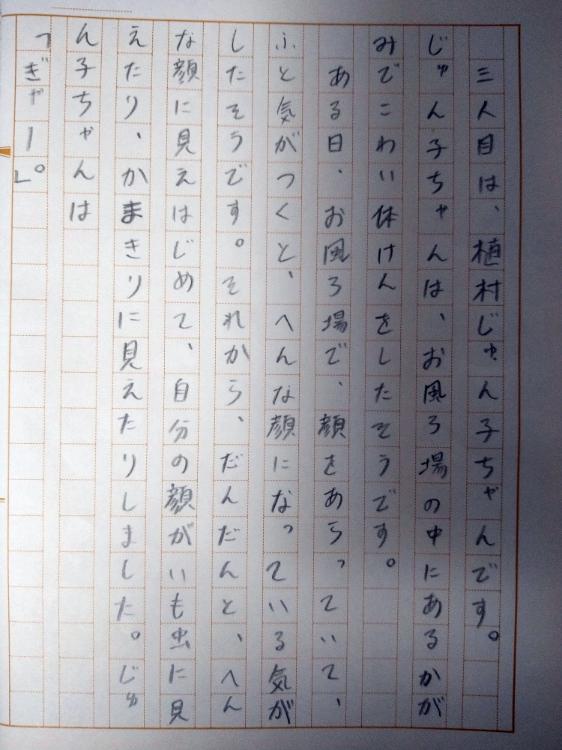 三人目は、植村じゅん子ちゃんです。
じゅん子ちゃんは、お風ろ場の中にあるかが
みでこわい体けんをしたそうです。
ある日、お風ろ場で、顔をあらっていて、
ふと気がつくと、へんな顔になっている気が
したそうです。それから、だんだんと、へん
な顔に見えはじめて、自分の顔がいも虫に見
えたり、かまきりに見えたりしました。じゅ
ん子ちゃんは
「ぎゃー」。